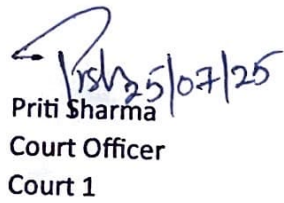 25/07/25
Priti Sharma
Court Officer
Court 1